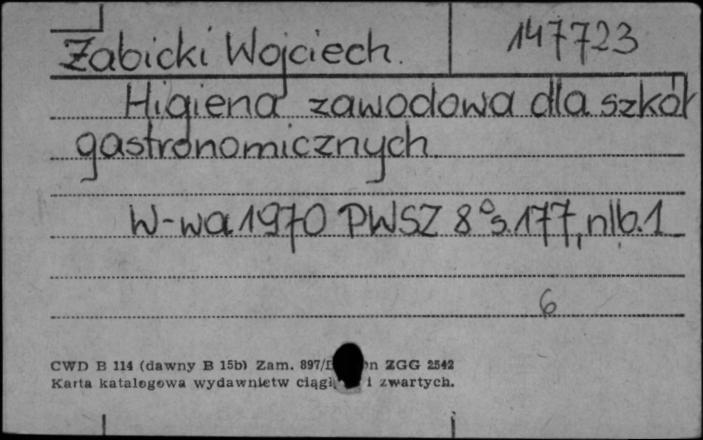 Żabicki Wojciech. 147723
Higiena zawodowa dla szkół
gastronomicznych.
W-wa 1970 PWSZ 8° s.177, nlb.1
6
CWD B 114 (dawny B 15b) Zam. 897/ ZGG 2542
Karta katalogowa wydawnictw i zwartych.